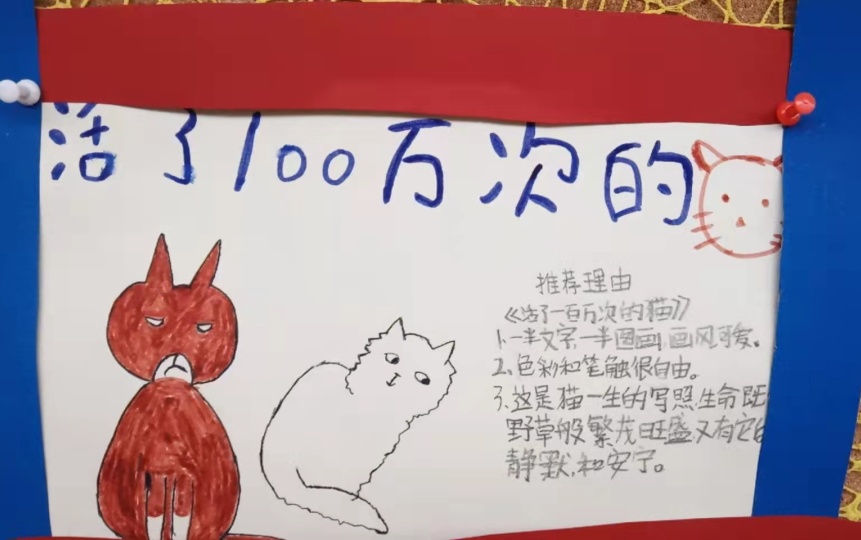 活了100万次的
推荐理由
《活了一百万次的猫》
1、一半文字一半图画，画风可爱。
2、色彩和笔触很自由。
3、这是猫一生的写照，生命既
野草般繁茂旺盛，又有它
静默，和安宁。